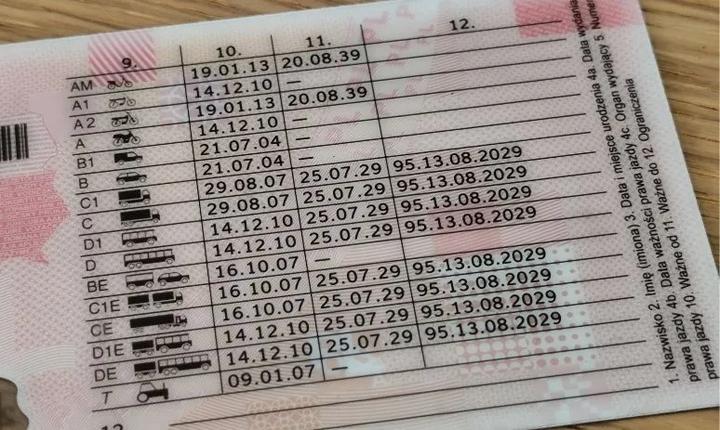 9. 10. 11. 12.
AM 19.01.13 20.08.39
A1 14.12.10 —
A2 19.01.13 20.08.39
A 14.12.10 —
B1 21.07.04 —
B 21.07.04 —
C1 29.08.07 25.07.29 95.13.08.2029
C 29.08.07 25.07.29 95.13.08.2029
D1 14.12.10 25.07.29 95.13.08.2029
D 14.12.10 25.07.29 95.13.08.2029
BE 16.10.07 —
C1E 16.10.07 25.07.29 95.13.08.2029
CE 16.10.07 25.07.29 95.13.08.2029
D1E 14.12.10 25.07.29 95.13.08.2029
DE 14.12.10 25.07.29 95.13.08.2029
T 09.01.07 —
1. Nazwisko 2. Imię (imiona) 3. Data i miejsce urodzenia 4a. Data wydania
prawa jazdy 4b. Data ważności prawa jazdy 4c. Organ wydający 5.
prawa jazdy 10. Ważne od 11. Ważne do 12. Ograniczenia